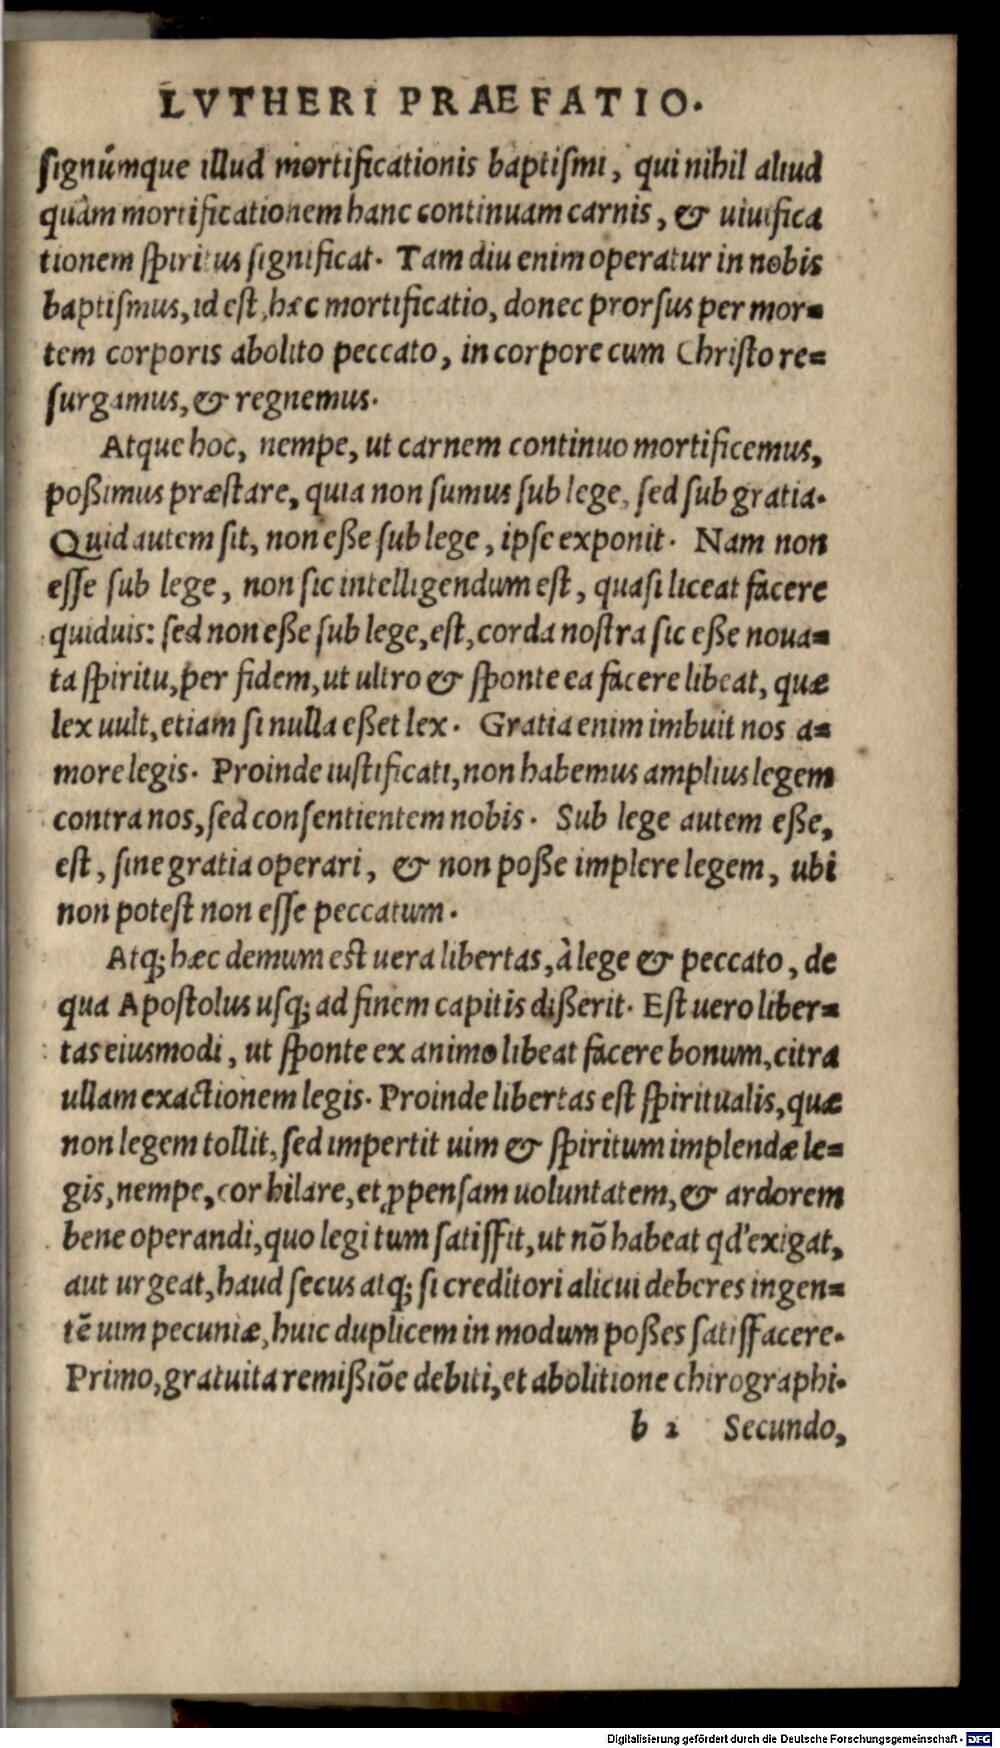 LVTHERI PRAEFATIO.
ſignúmque illud mortificationis baptiſmi, qui nihil aliud
quàm mortificationem hanc continuam carnis, & uiuifica
tionem ſpiritus ſignificat. Tam diu enim operatur in nobis
baptiſmus, id eſt, hæc mortificatio, donec prorſus per mor=
tem corporis abolito peccato, in corpore cum Chriſto re=
ſurgamus, & regnemus.
Atque hoc, nempe, ut carnem continuo mortificemus,
poßimus præſtare, quia non ſumus ſub lege, ſed ſub gratia.
Quid autem ſit, non eße ſub lege, ipſe exponit. Nam non
eſſe ſub lege, non ſic intelligendum eſt, quaſi liceat facere
quiduis: ſed non eße ſub lege, eſt, corda noſtra ſic eße noua=
ta ſpiritu, per fidem, ut ultro & ſponte ea facere libeat, quæ
lex uult, etiam ſi nulla eßet lex. Gratia enim imbuit nos a=
more legis. Proinde iuſtificati, non habemus amplius legem
contra nos, ſed conſentientem nobis. Sub lege autem eße,
eſt, ſine gratia operari, & non poße implere legem, ubi
non poteſt non eſſe peccatum.
Atq; hæc demum eſt uera libertas, à lege & peccato, de
qua Apoſtolus uſq; ad finem capitis dißerit. Eſt uero liber=
tas eiusmodi, ut ſponte ex animo libeat facere bonum, citra
ullam exactionem legis. Proinde libertas eſt ſpiritualis, quæ
non legem tollit, ſed impertit uim & ſpiritum implendæ le=
gis, nempe, cor hilare, et ꝓpenſam uoluntatem, & ardorem
bene operandi, quo legi tum ſatiſfit, ut nō habeat qd' exigat,
aut urgeat, haud ſecus atq; ſi creditori alicui deberes ingen=
tē uim pecuniæ, huic duplicem in modum poßes ſatiſfacere.
Primo, gratuita remißiōe debiti, et abolitione chirographi.
b 2 Secundo,
Digitalisierung gefördert durch die Deutsche Forschungsgemeinschaft - DFG